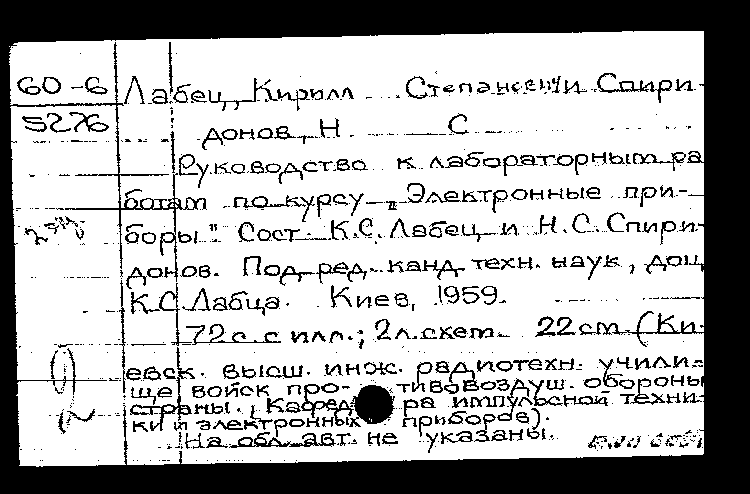 60-6
5276
Лабец, Кирилл Степанович и Спири-
донов, Н. С
Руководство к лабораторным ра
ботам по курсу „Электронные при-
боры". Сост. К.С. Лабец и Н.С. Спири-
донов. Под ред. канд. техн. наук, доц.
К.С. Лабца. Киев, 1959.
72 с. с илл.; 2 л. схем. 22 см. (Ки-
евск. высш. инж. радиотехн. учили-
ще войск противовоздуш. обороны
страны. Кафедра импульсной техни-
ки и электронных приборов).
На обл. авт. не указаны.
2 экз
2